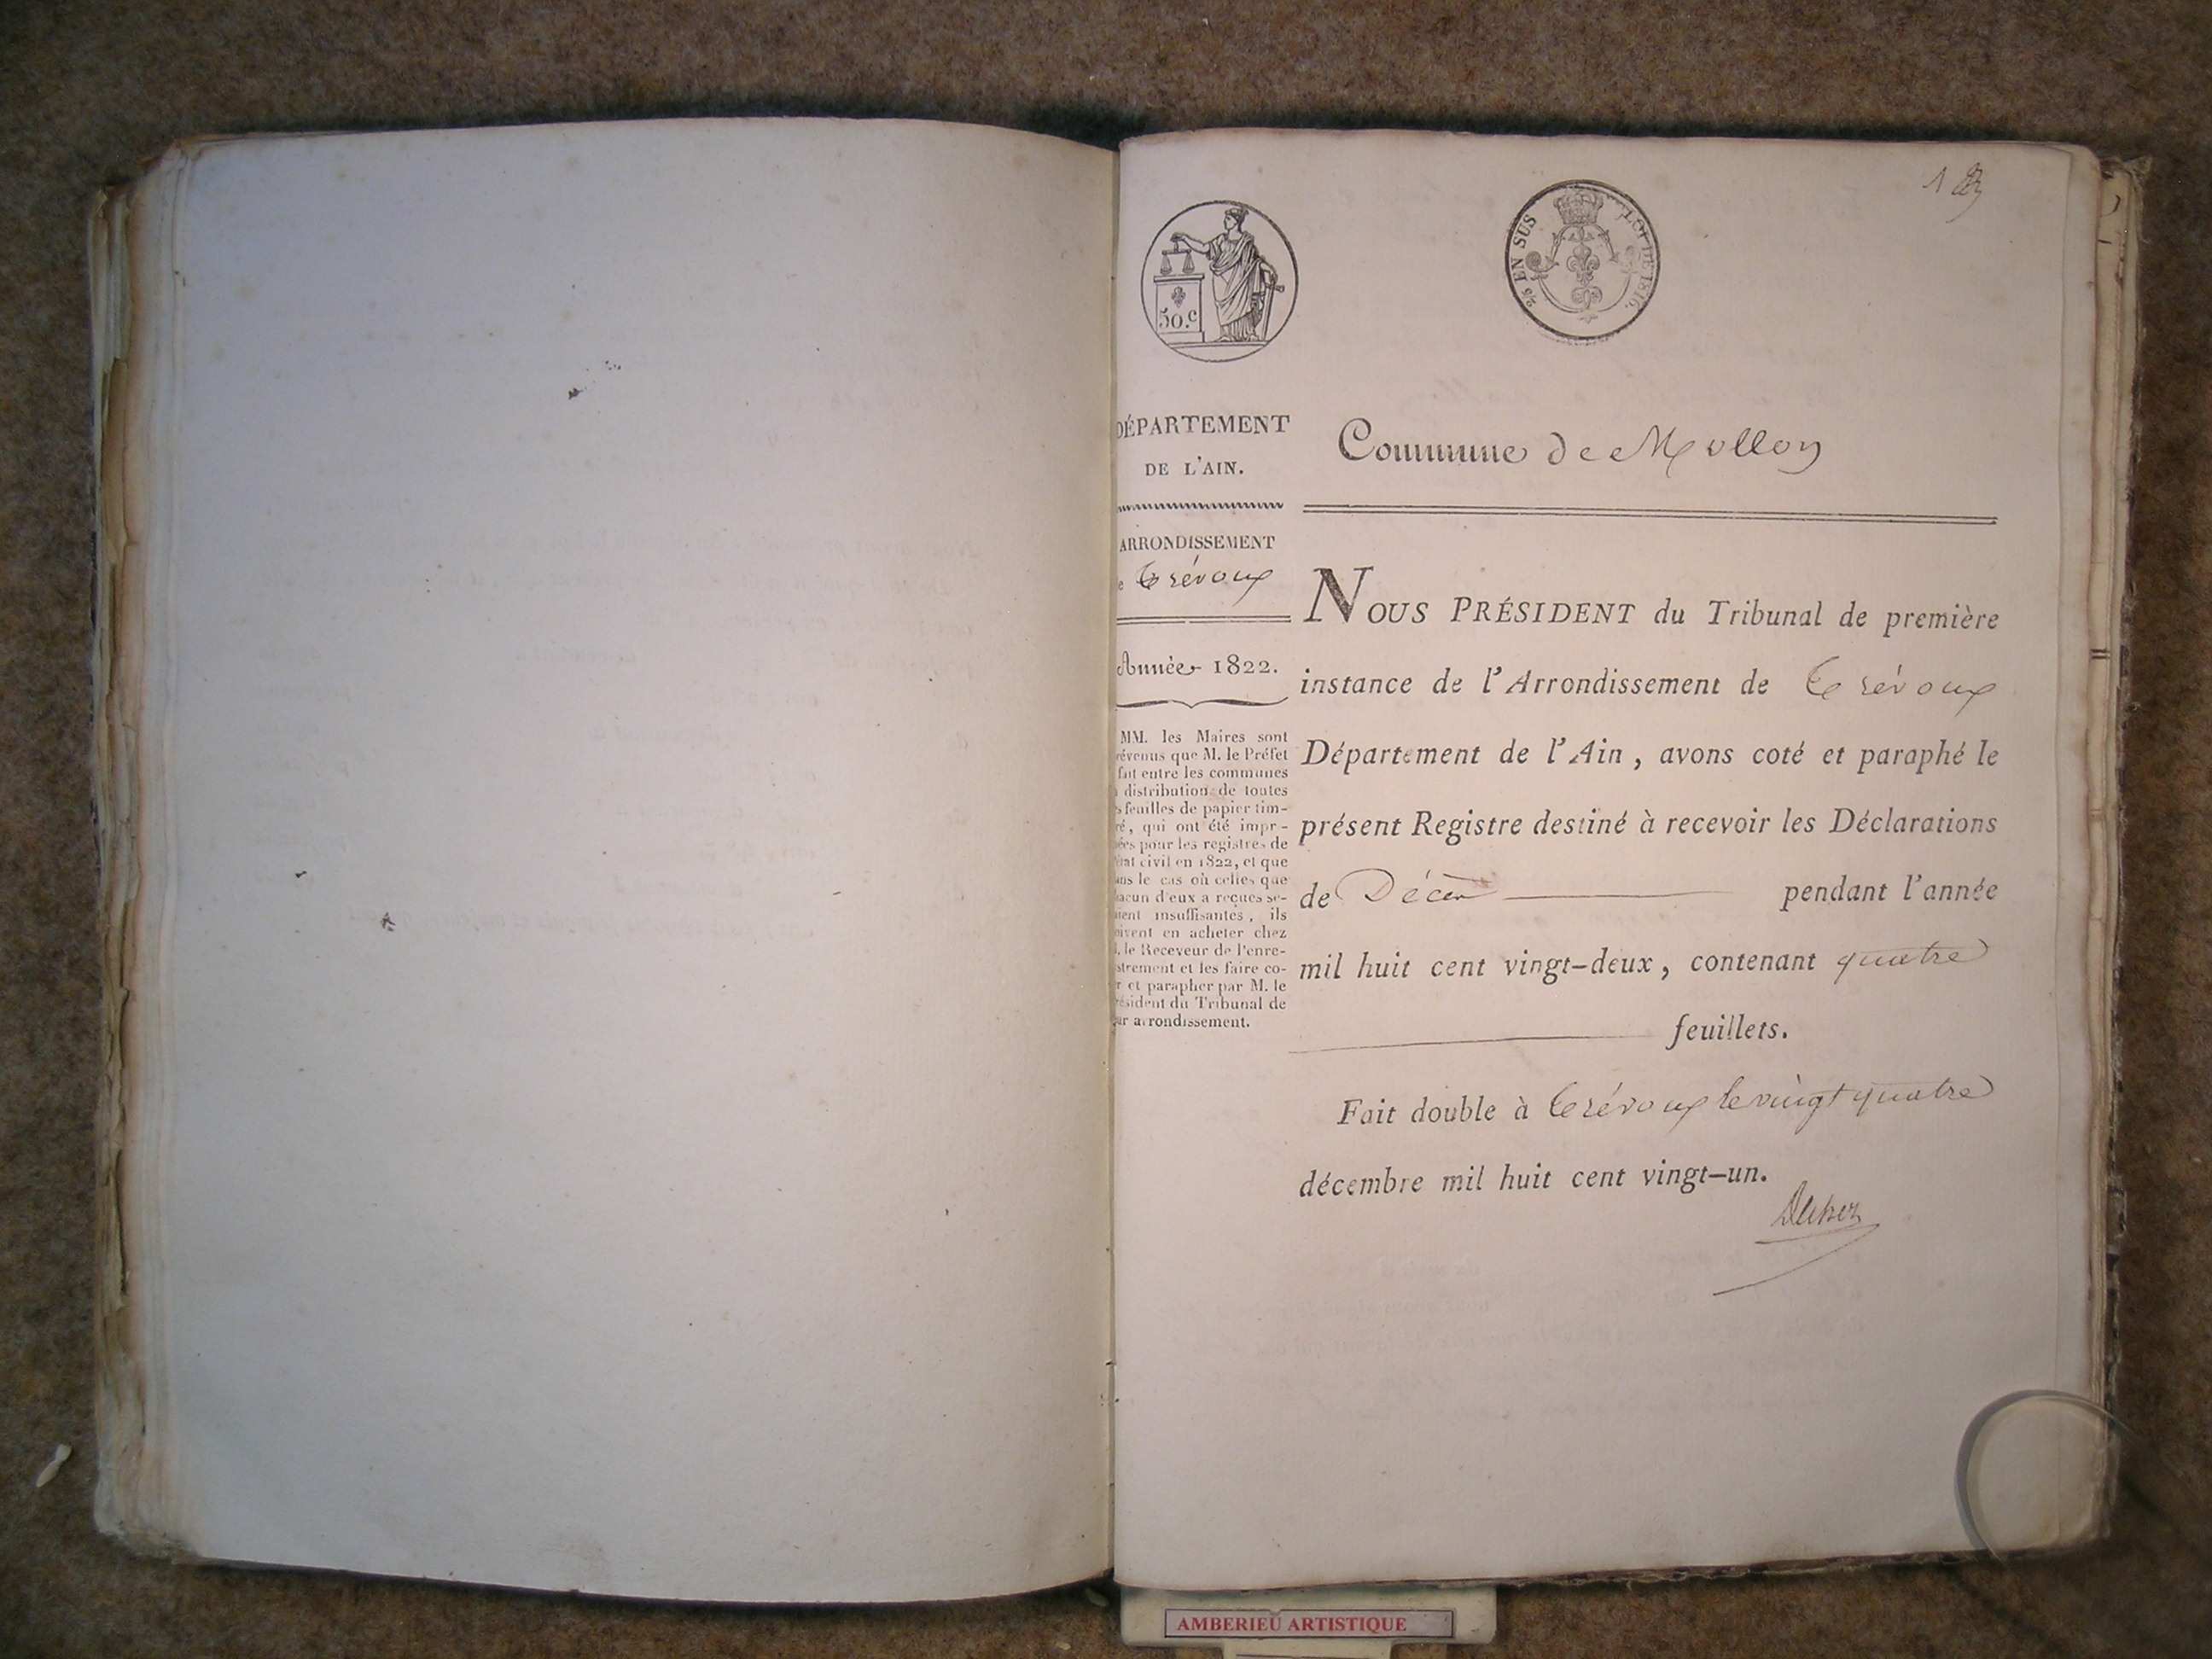 1
50.c
2/5 EN SUS LOI DE 1816.
DÉPARTEMENT
DE L'AIN.
Commune de Mollon
ARRONDISSEMENT
e Trévoux
Année 1822.
MM. les Maires sont
révenus que M. le Préfet
fait entre les communes
a distribution de toutes
s feuilles de papier tim-
ré, qui ont été impr-
ées pour les registres de
état civil en 1822, et que
ans le cas où celles que
hacun d'eux a reçues se-
aient insuffisantes, ils
oivent en acheter chez
. le Receveur de l'enre-
strement et les faire co-
r et parapher par M. le
résident du Tribunal de
ur arrondissement.
NOUS PRÉSIDENT du Tribunal de première
instance de l'Arrondissement de Trévoux
Département de l'Ain, avons coté et paraphé le
présent Registre destiné à recevoir les Déclarations
de Décès pendant l'année
mil huit cent vingt-deux, contenant quatre
feuillets.
Fait double à Trévoux le vingt quatre
décembre mil huit cent vingt-un.
AMBERIEU ARTISTIQUE